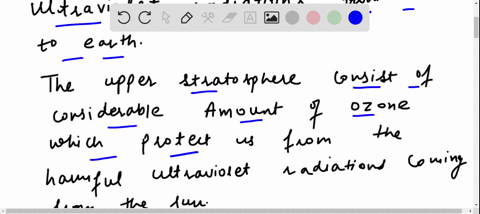 Ultraviolet radiations
to earth.
The upper stratosphere consist of
considerable Amount of ozone
which protect us from the
harmful ultraviolet radiations coming
from the sun.